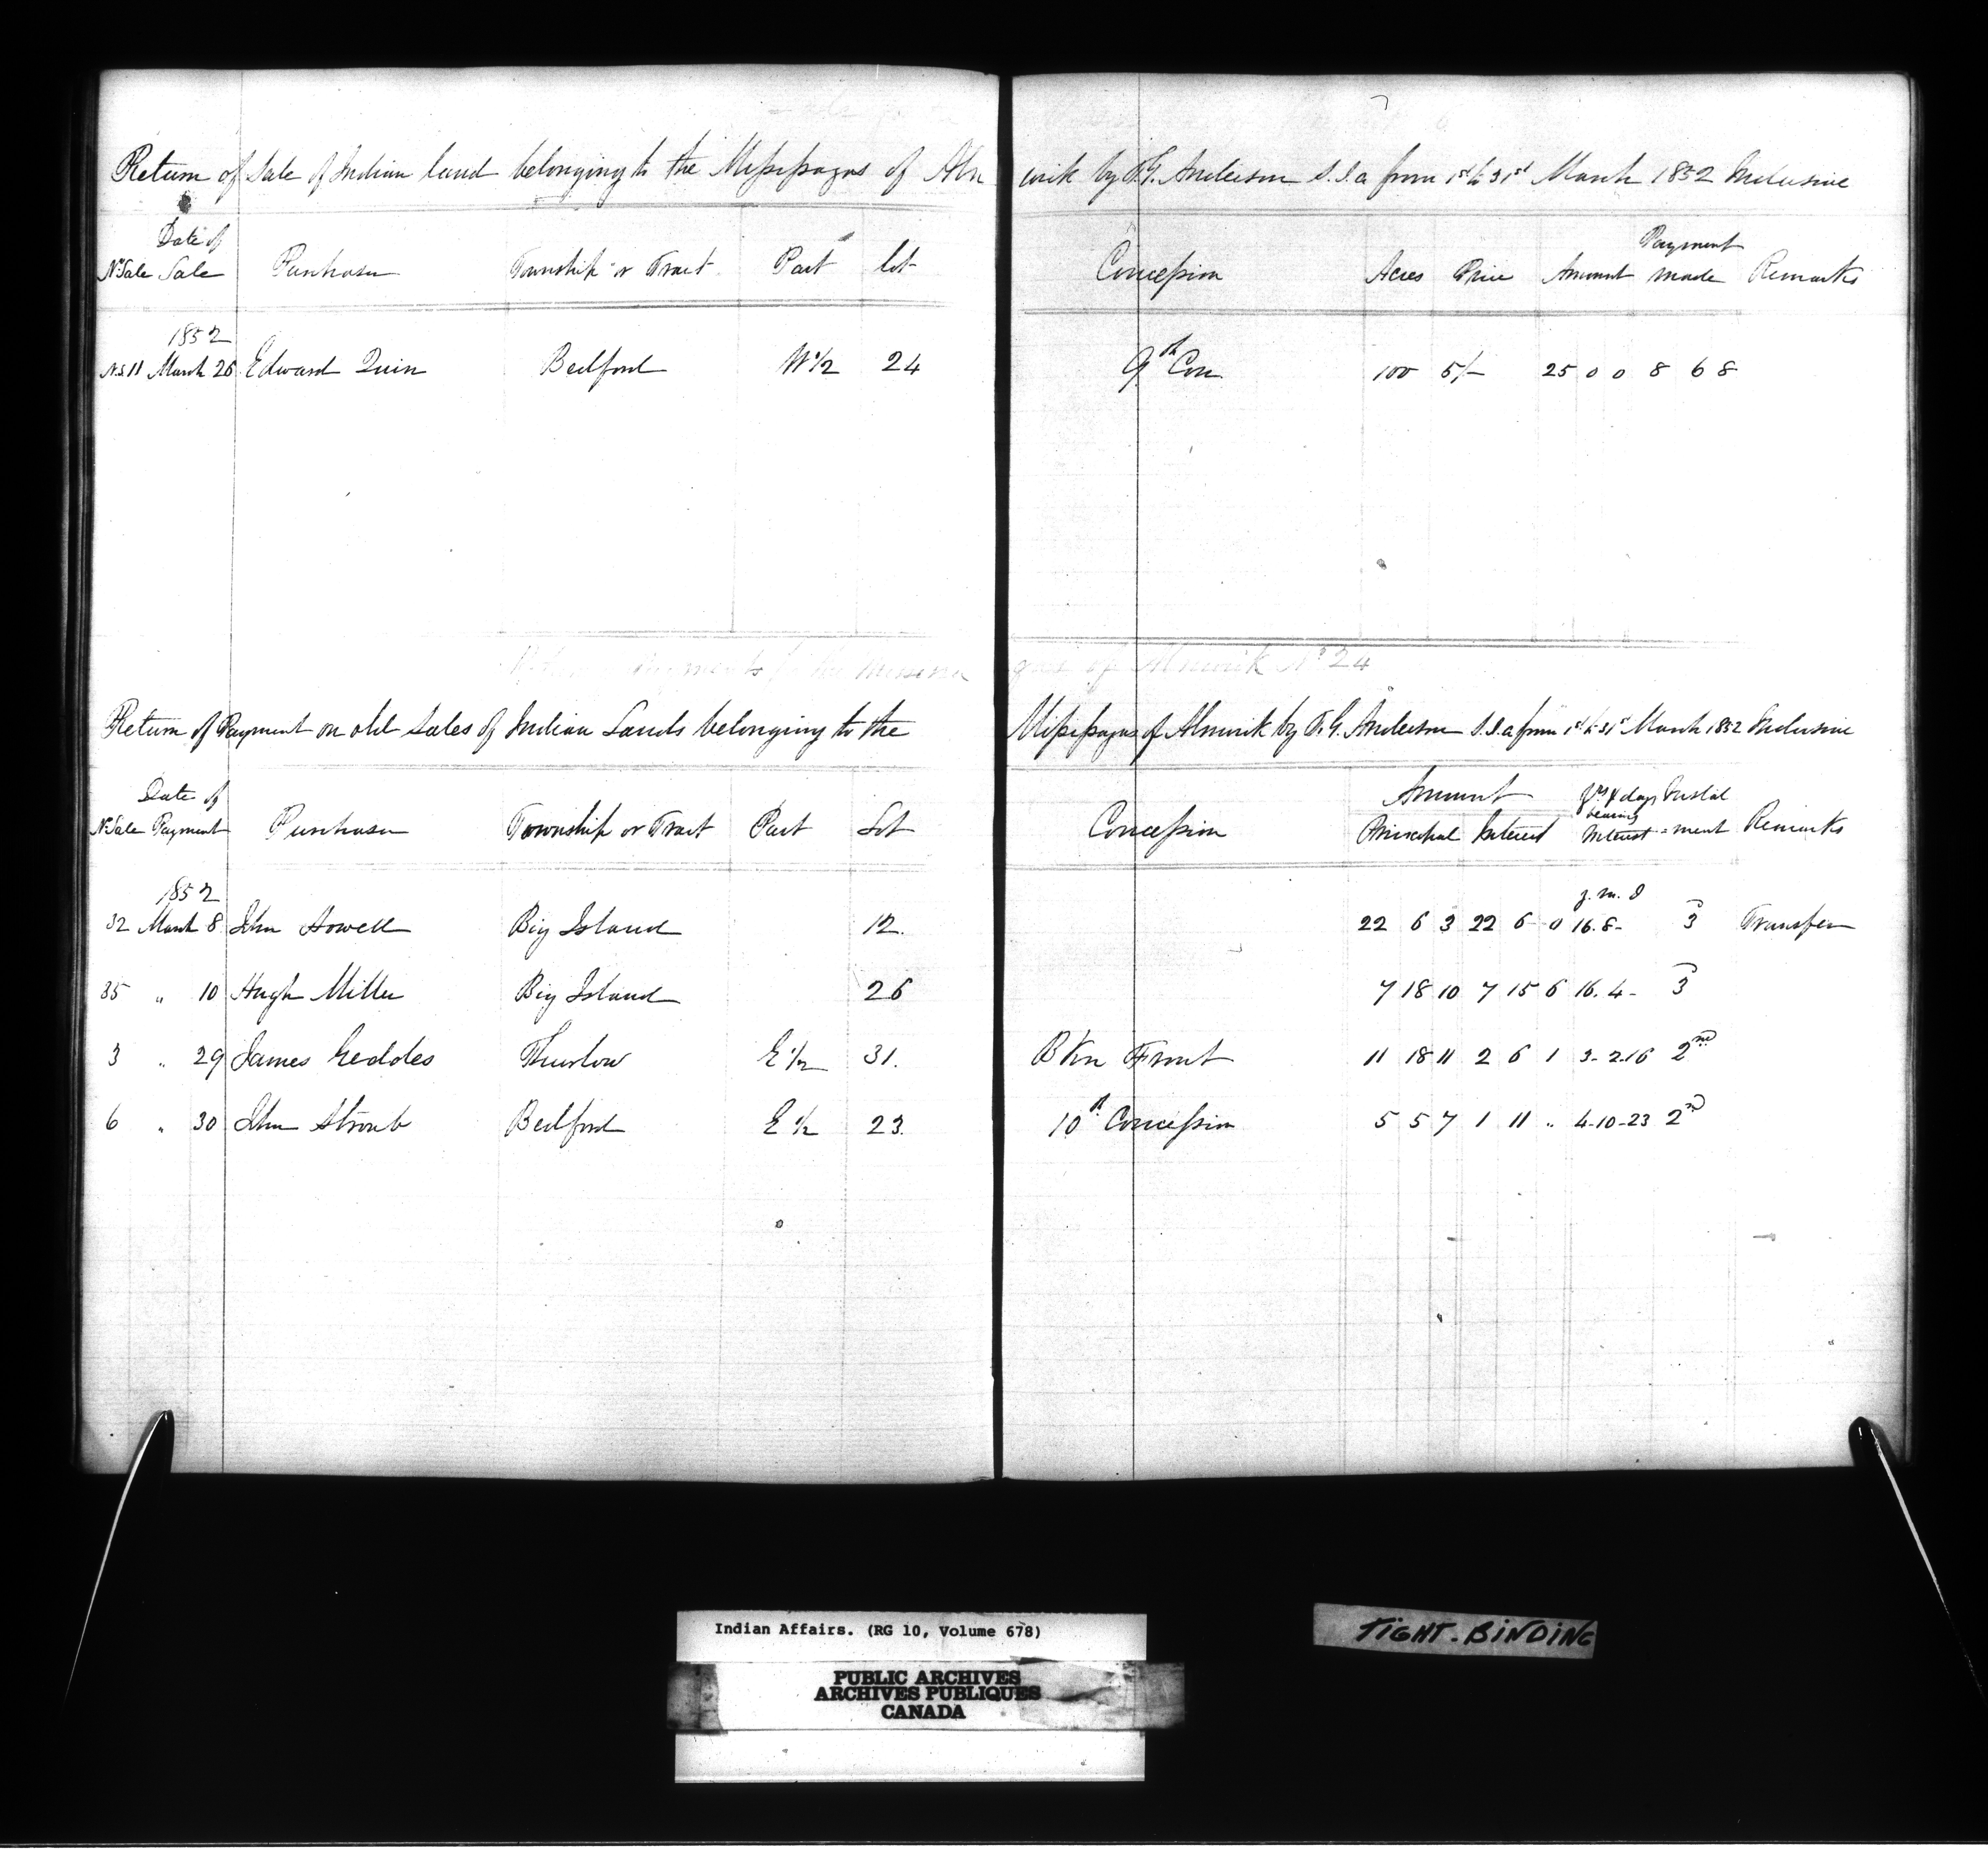 Return of Sale of Indian land belonging to the Missisagas of Aln wick by T.G. Anderson S.I.a from 1st to 31st March 1852 Inclusive
Date of Payment
No Sale Sale Purchaser Township or Tract Part lot Concession Acres Price Amount made Remarks
1852
N.S. 11 March 26 Edward Quin Bedford W 1/2 24 9th Con 100 5/- 25 0 0 8 6 8
gas of Alnwick No 24
Return of Payment on old Sales of Indian Lands belonging to the Missisagas of Alnwick by T.G. Anderson S.I.a from 1st to 31st March 1852 Inclusive
Date of Amount Yrs & days Instal
bearing
No Sale Payment Purchaser Township or Tract Part Lot Concession Principal Interest Interest =ment Remarks
1852 y. m. d
32 March 8 John Howell Big Island 12. 22 6 3 22 6 0 16.8- 3 Transfer
35 " 10 Hugh Miller Big Island 26 7 18 10 7 15 6 16.4- 3
3 " 29 James Geddes Thurlow E 1/2 31. Bkn Front 11 18 11 2 6 1 3-2.16 2nd
6 " 30 John Stroub Bedford E 1/2 23. 10th Concession 5 5 7 1 11 " 4-10-23 2nd
Indian Affairs. (RG 10, Volume 678)
PUBLIC ARCHIVES
ARCHIVES PUBLIQUES
CANADA
TIGHT-BINDING